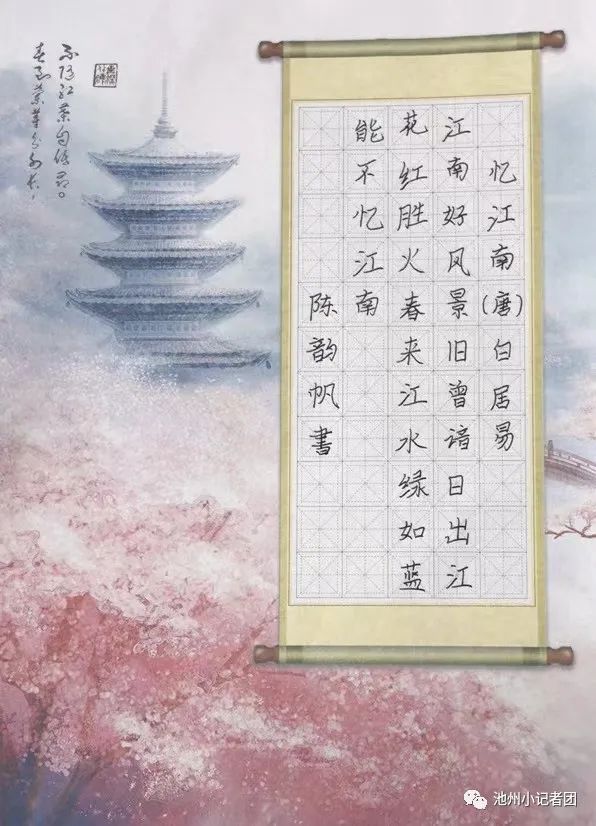 忆江南(唐)白居易
江南好风景旧曾谙日出江
花红胜火春来江水绿如蓝
能不忆江南
陈韵帆書
池州小记者团